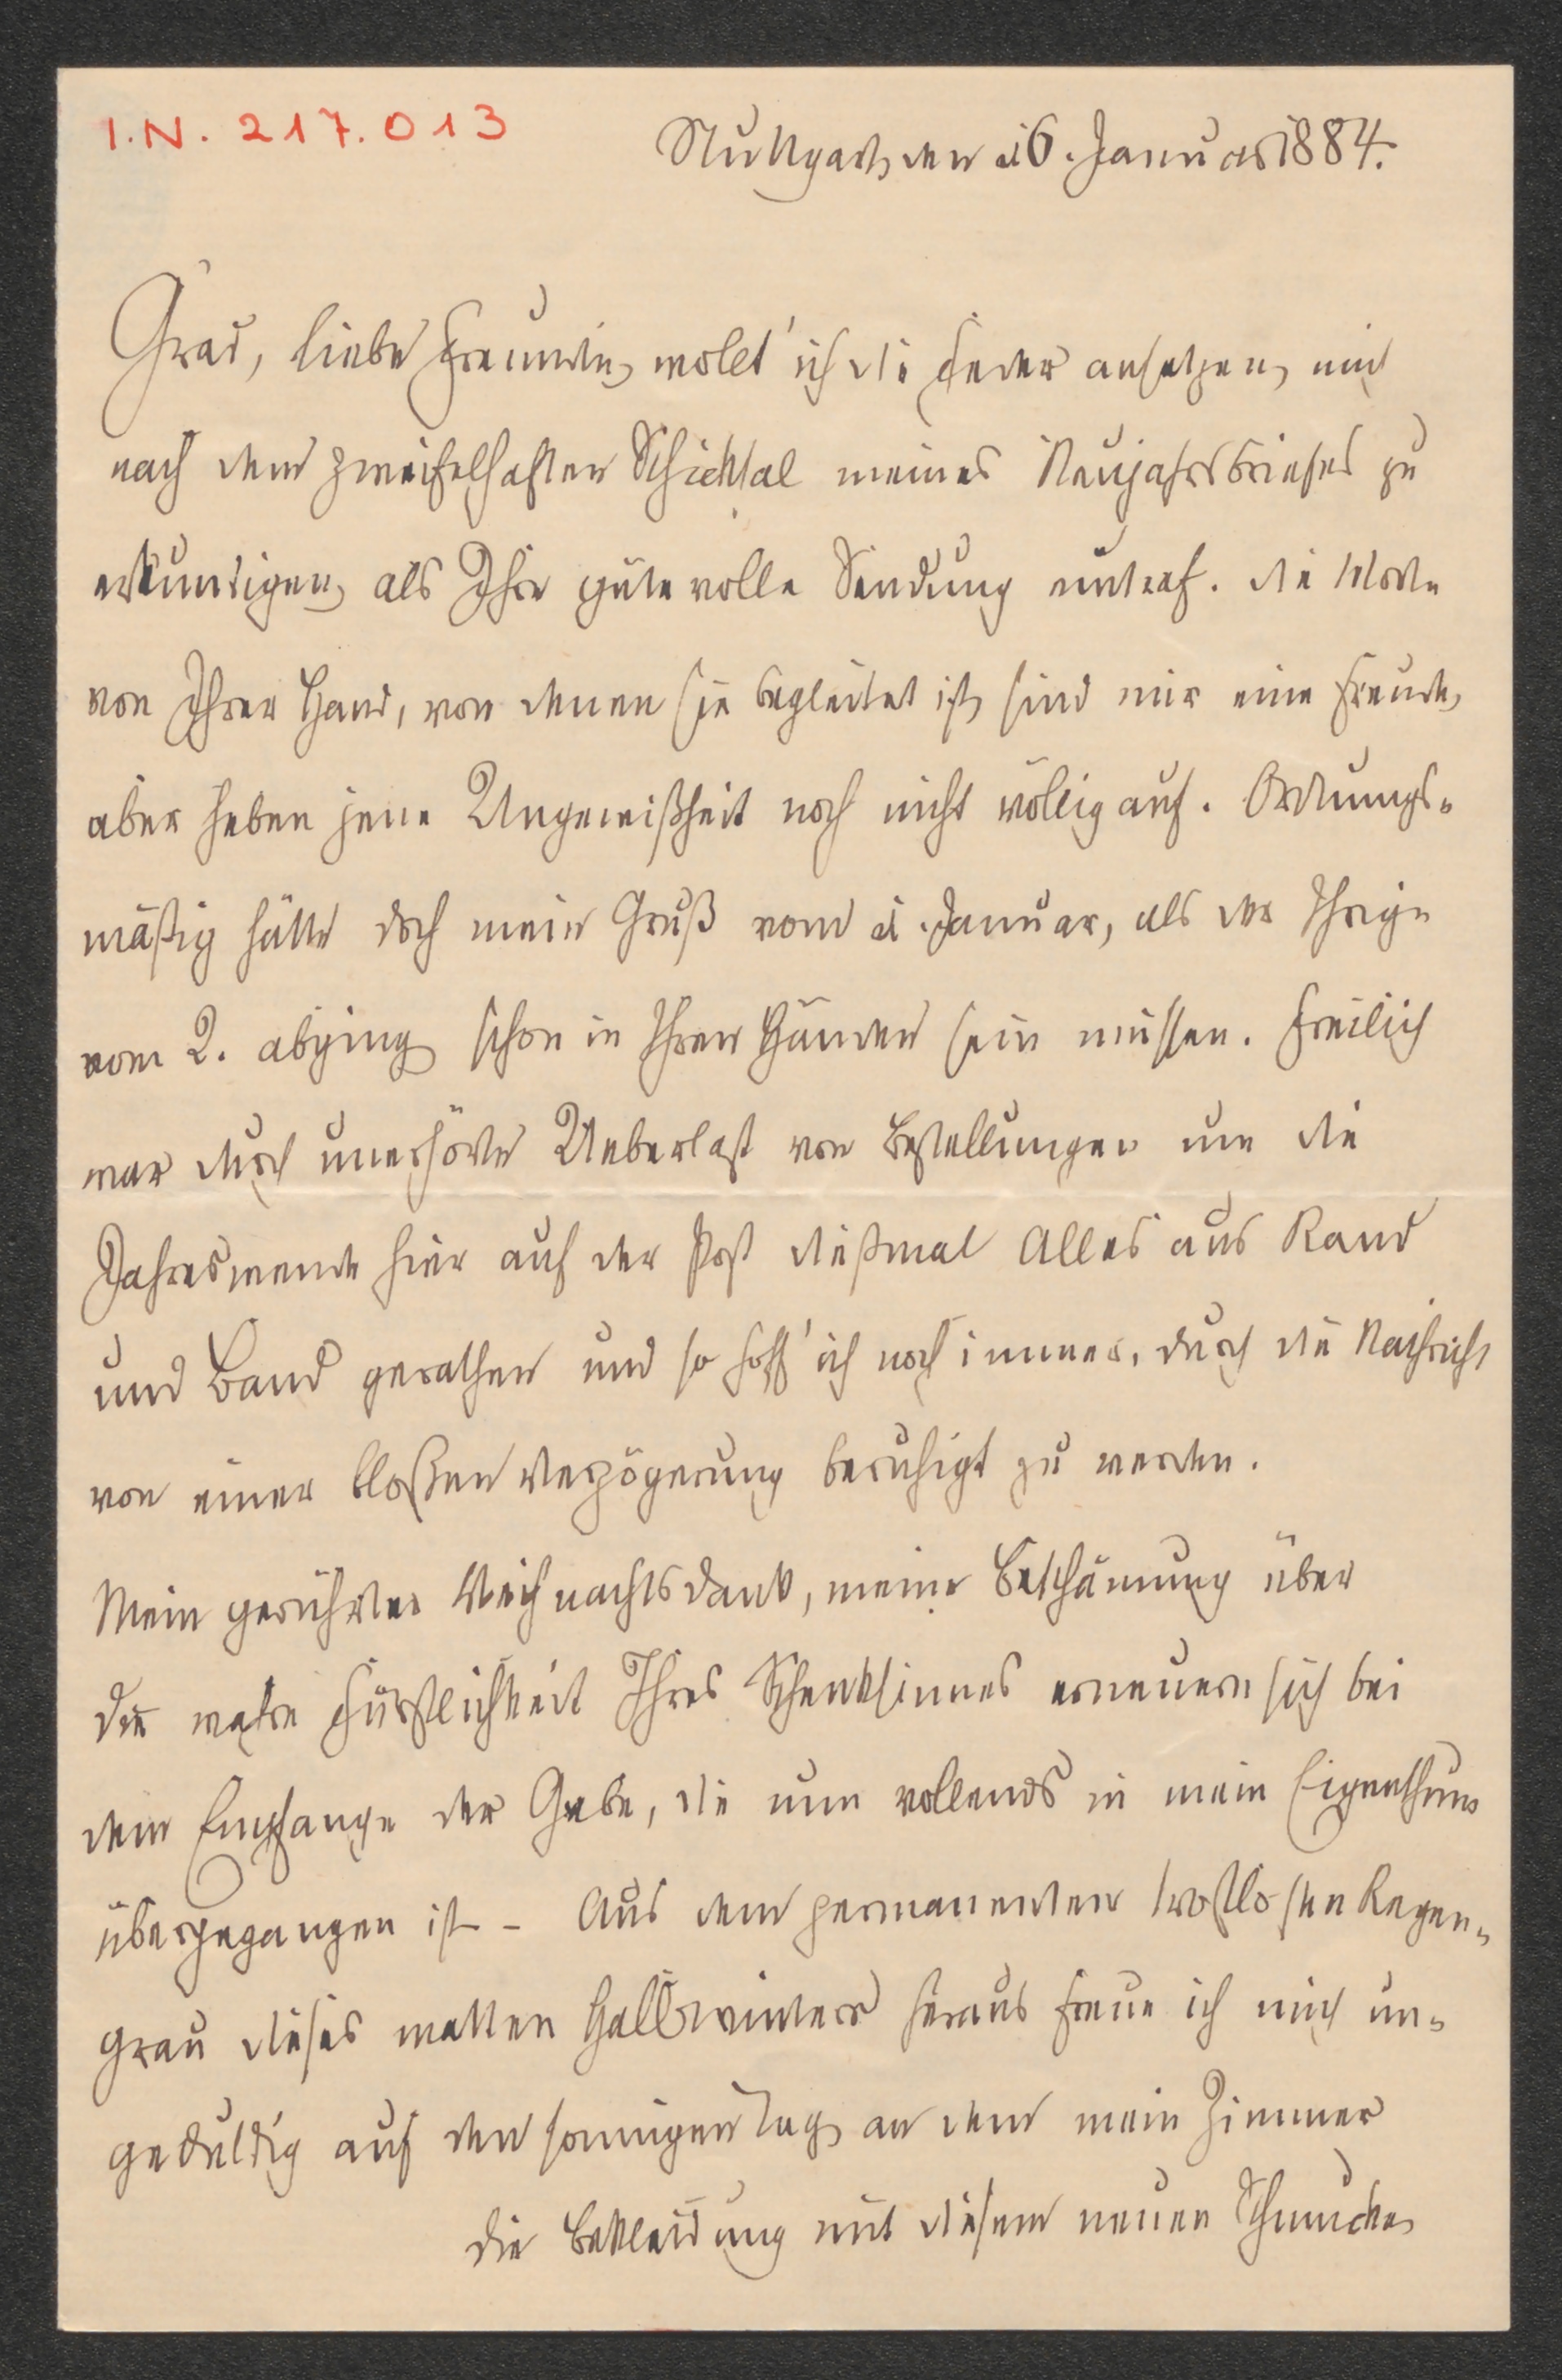 I.N. 217.013
Stuttgart, den 16. Januar 1884.
Grad, liebe Freundin, wollt' ich die Feder ansetzen, mich
nach dem zweifelhaften Schicksal meines Neujahrsbriefes zu
erkundigen, als Ihre gütevolle Sendung eintraf. Die Worte
von Ihrer Hand, von denen sie begleitet ist, sind mir eine Freude,
aber heben jene Ungewißheit noch nicht völlig auf. Ordnungs-
mäßig hätte doch mein Gruß vom 1. Januar, als der Ihrige
vom 2. abging, schon in Ihren Händen sein müssen. Freilich
war durch unerhörte Ueberlast von Bestellungen um die
Jahreswende hier auf der Post dießmal Alles aus Rand
und Band gerathen und so hoff' ich noch immer, durch die Nachricht
von einer bloßen Verzögerung beruhigt zu werden.
Mein gerührter Weihnachtsdank, meine Beschämung über
die wahre Fürstlichkeit Ihres Schenksinnes erneuern sich bei
dem Empfange der Gabe, die nun vollends in mein Eigenthum
übergegangen ist. – Aus dem permanenten trostlosen Regen-
grau dieses matten Halbwinters heraus freue ich mich un-
geduldig auf den sonnigen Tag, an dem mein Zimmer
die Bekleidung mit diesem neuen Schmucke,